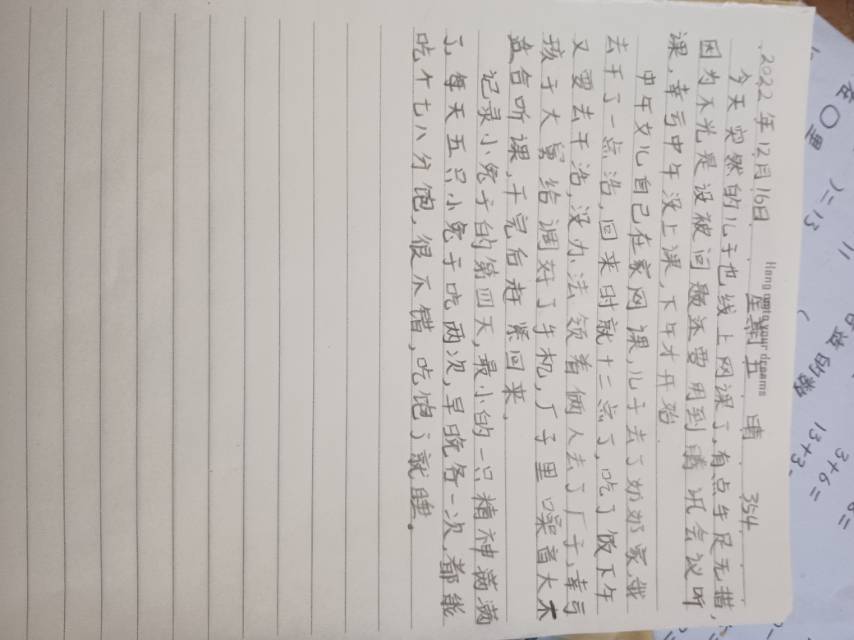 Hang onto your dreams
2022年12月16日 星期五 晴 354
今天突然的儿子也线上网课了,有点手足无措,
因为不光是没被问题还要用到腾讯会议听
课,幸亏中午没上课,下午才开始
中午女儿自己在家网课,儿子去了奶奶家我
去干了一点活,回来时就十二点了,吃了饭下午
又要去干活,没办法领着俩人去了厂子,幸亏
孩子大舅给调好了手机,厂子里噪音大不
适合听课,干完后赶紧回来,
记录小兔子的第四天,最小的一只精神满满
了,每天五只小兔子吃两次,早晚各一次,都能
吃个七八分饱,很不错,吃饱了就睡。
里
)=13
(
13+3
3+6=